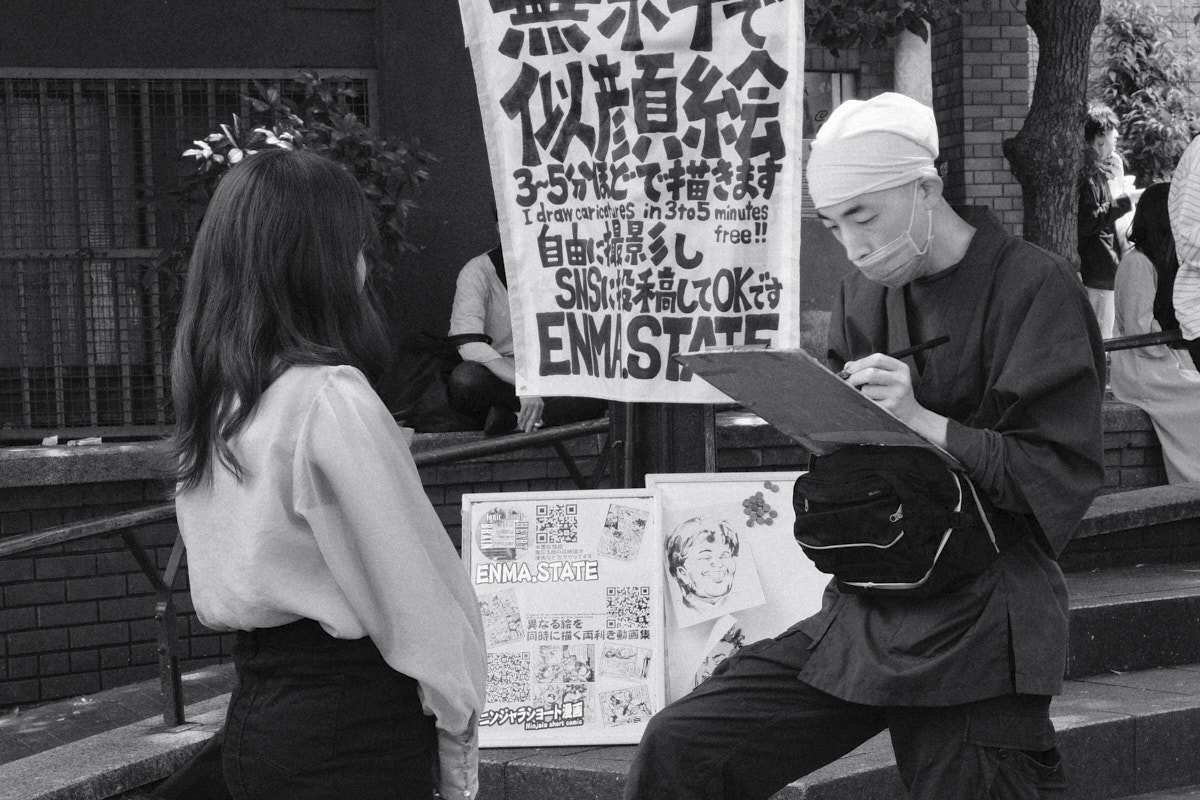 無料で
似顔絵
3~5分ほどで描きます
I draw caricatures in 3 to 5 minutes
free!!
自由に撮影し
SNSに投稿してOKです
ENMA.STATE
ENMA.STATE
異なる絵を
同時に描く両利き動画集
ニンジャラショート漫画
Ninjala short comic